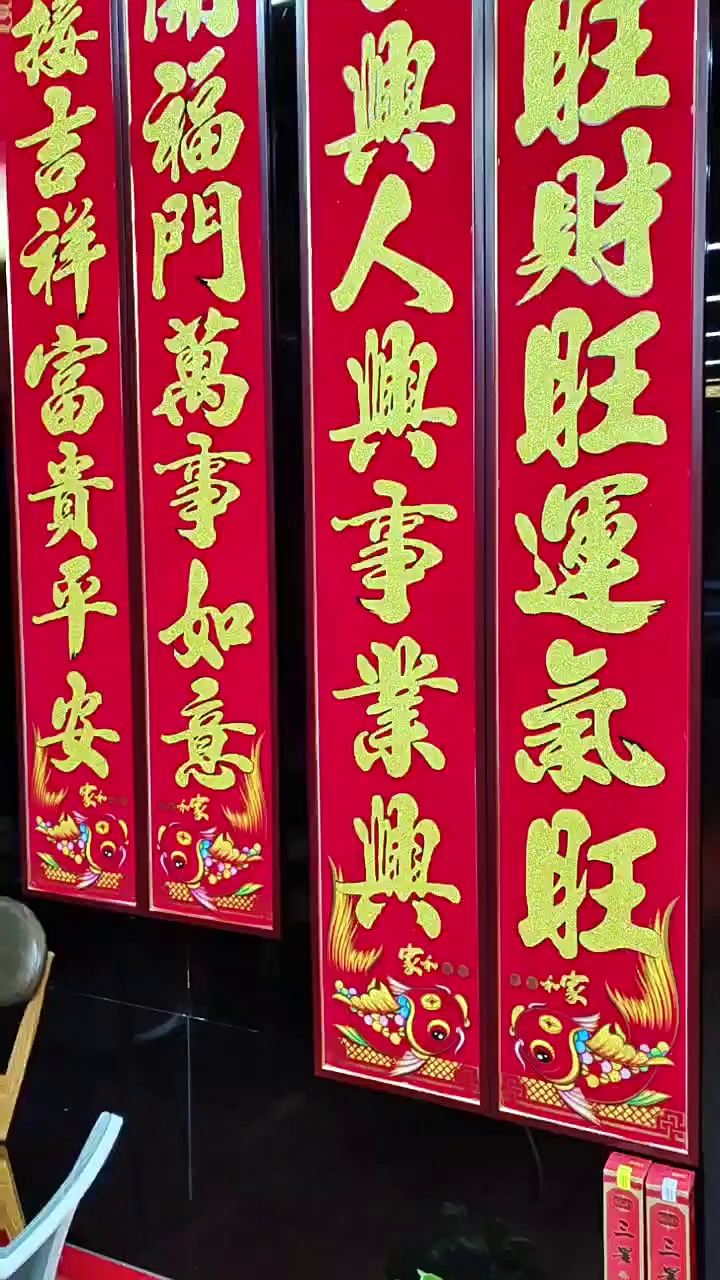 旺財旺運氣旺
興人興事業興
開福門萬事如意
接吉祥富貴平安
家和
家和
家和
家和
三
三